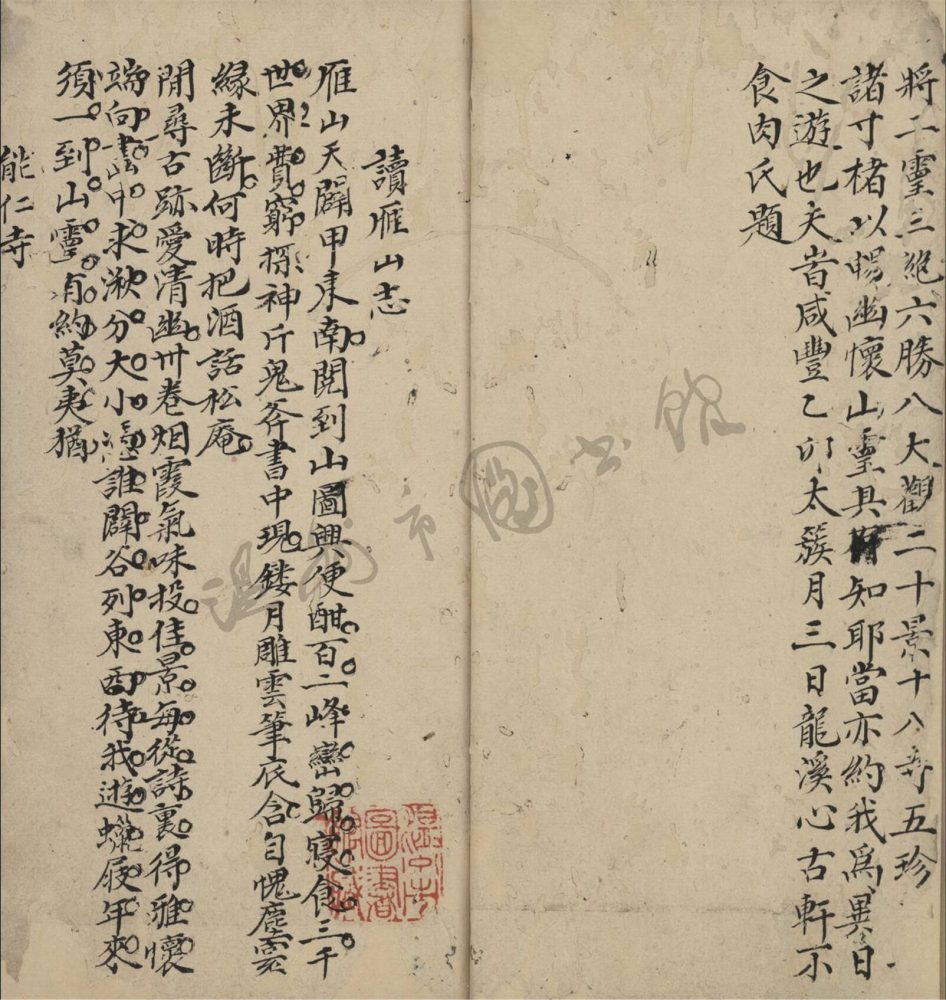 將二靈三絶六勝八大觀二十景十八奇五珍
諸寸楮以暢幽懷山靈具知耶當亦約我爲異日
之遊也夫旹咸豐乙卯太簇月三日龍溪心古軒不
食肉氏題
讀雁山志
雁山天闢甲東南閱到山圖興便酣百二峰巒歸寢食三千
世界費窮探神斤鬼斧書中現鏤月雕雲筆底含自愧塵
緣未斷何時把酒話松庵
閒尋古跡愛清幽卅卷烟霞氣味投佳景每從詩裏得雅懷
端向畫中求湫分大小誰闢谷列東西待我遊蠟屐年來
須一到山靈有約莫夷猶
能仁寺
溫州市圖書館
溫州市圖書館藏